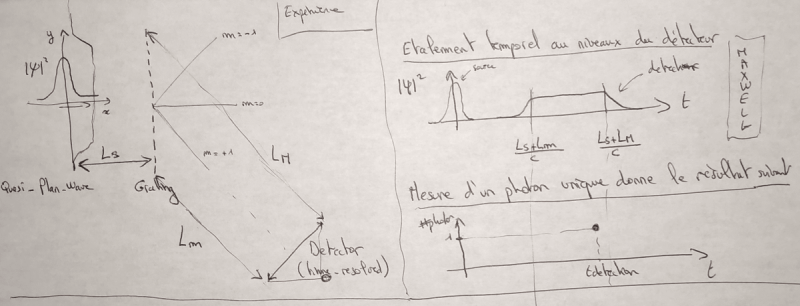 Expérience
y
|ψ|²
x
m=-1
m=0
m=+1
Ls
LM
Lm
Quasi-Plan-Wave
Grating
Detector
(time-resolved)
Etalement temporel au niveaux du détecteur
|ψ|²
source
detecteur
t
Ls+Lm
c
Ls+LM
c
MAXWELL
Mesure d'un photon unique donne le résultat suivant
#photon
1
tdetection
t